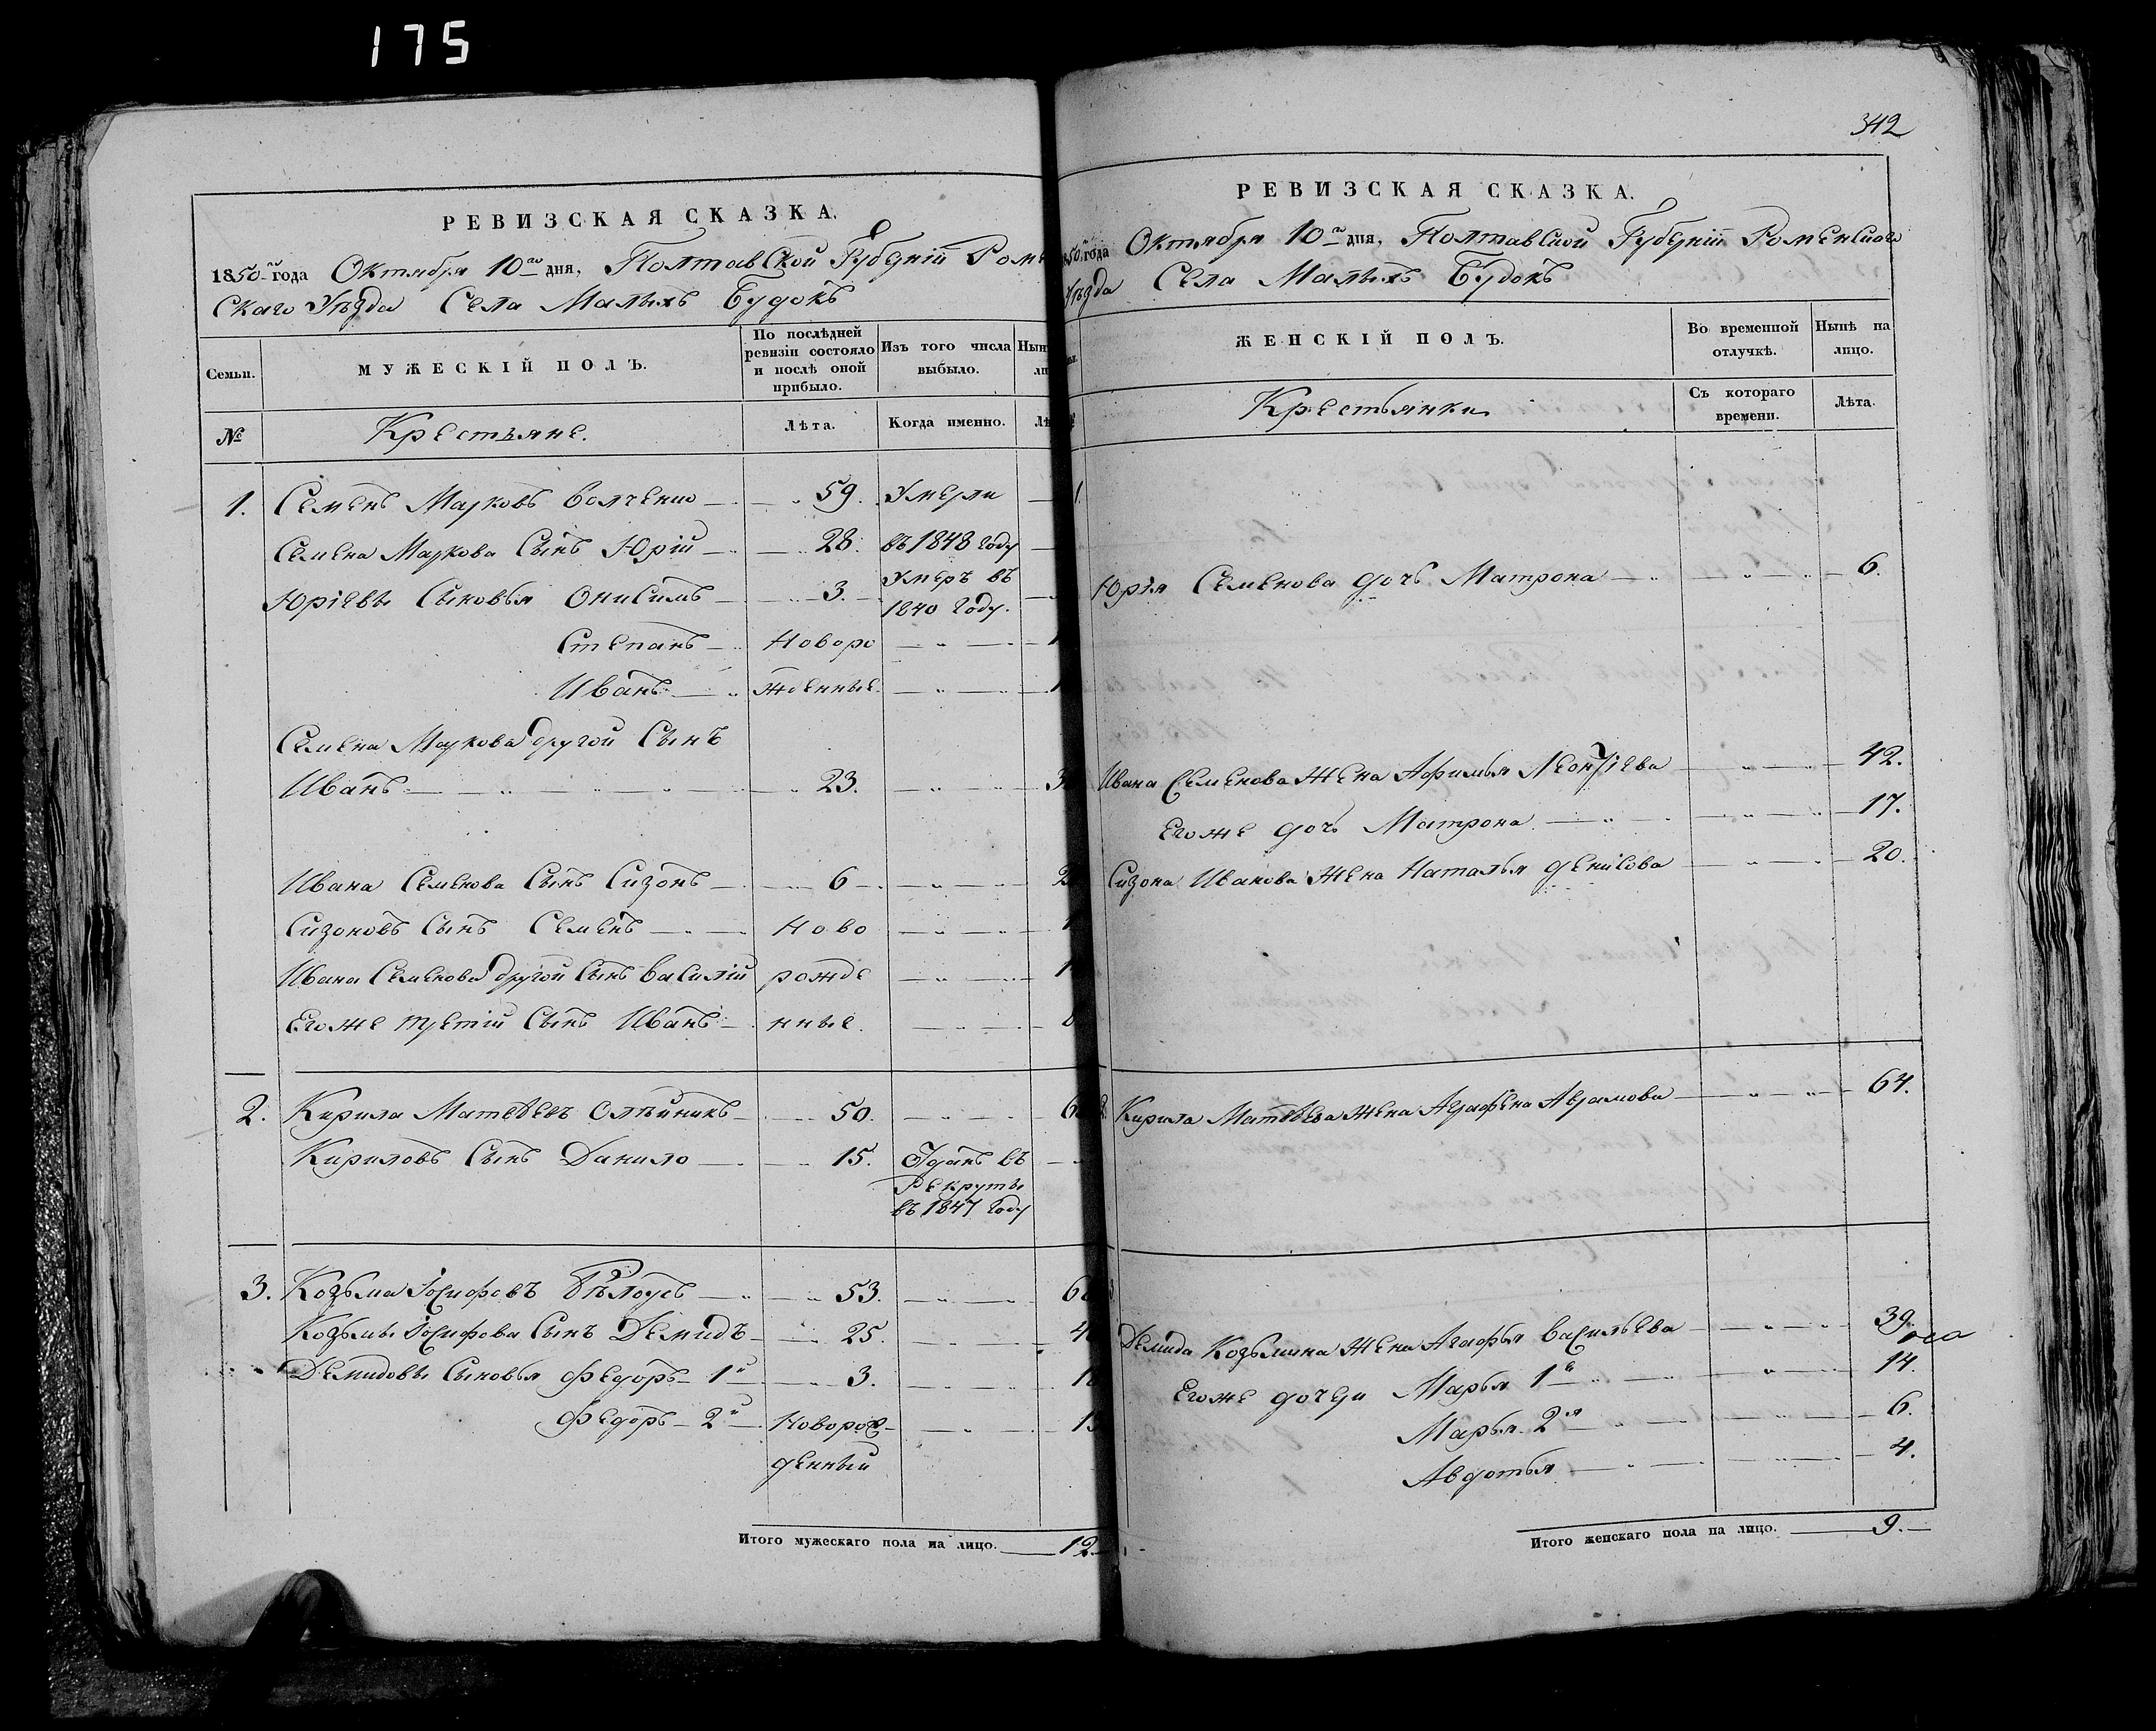 175
РЕВИЗСКАЯ СКАЗКА.
1850го года Октября 10го дня, Полтавской Губерніи
Скаго Уѣзда Села Малыхъ Будокъ
Семьи.
МУЖЕСКІЙ ПОЛЪ.
По послѣдней ревизіи состояло и послѣ оной прибыло.
Изъ того числа выбыло.
№
Крестьяне.
Лѣта.
Когда именно.
1. Семенъ Марковъ Волченко 59. Умерли
Семена Маркова Сынъ Юрій 28. въ 1848 Году
Юріевы Сыновья Онисимъ 3. Умеръ въ 1840 Году.
Степанъ Новоро
Иванъ жденные.
Семена Маркова другой Сынъ
Иванъ 23.
Ивана Семенова Сынъ Сизонъ 6
Сизоновъ Сынъ Семенъ Ново
Ивана Семенова другой Сынъ Василій рожде
Егоже третій Сынъ Иванъ нные.
2. Кирила Матвѣевъ Олѣйникъ 50.
Кириловъ Сынъ Данило 15. Зданъ въ
Рекруты
въ 1847 Году
3. Козьма Іосифовъ Бѣлоусъ 53.
Козьмы Іосифова Сынъ Демидъ 25.
Демидовы Сыновья Федоръ 1й 3.
Федоръ 2й Новорож
денный
Итого мужескаго пола на лицо. 12
342
РЕВИЗСКАЯ СКАЗКА.
года Октября 10го дня, Полтавской Губерніи Роменскаго
Уѣзда Села Малыхъ Будокъ
ЖЕНСКІЙ ПОЛЪ.
Во временной отлучкѣ.
Нынѣ на лицо.
Крестьянки
Съ котораго времени.
Лѣта.
1.
Юрія Семенова дочь Матрона 6.
Ивана Семенова Жена Афимья Леонтіева 42.
Егоже дочь Матрона 17.
Сизона Иванова Жена Наталья Денисова 20.
Кирила Матвѣева Жена Аграфена Аврамова 64.
Демида Козьмина Жена Агафья Васильева 39.
Егоже дочери Марья 1я 14.
Марья 2я 6.
Авдотья 4.
Итого женскаго пола на лицо. 9.